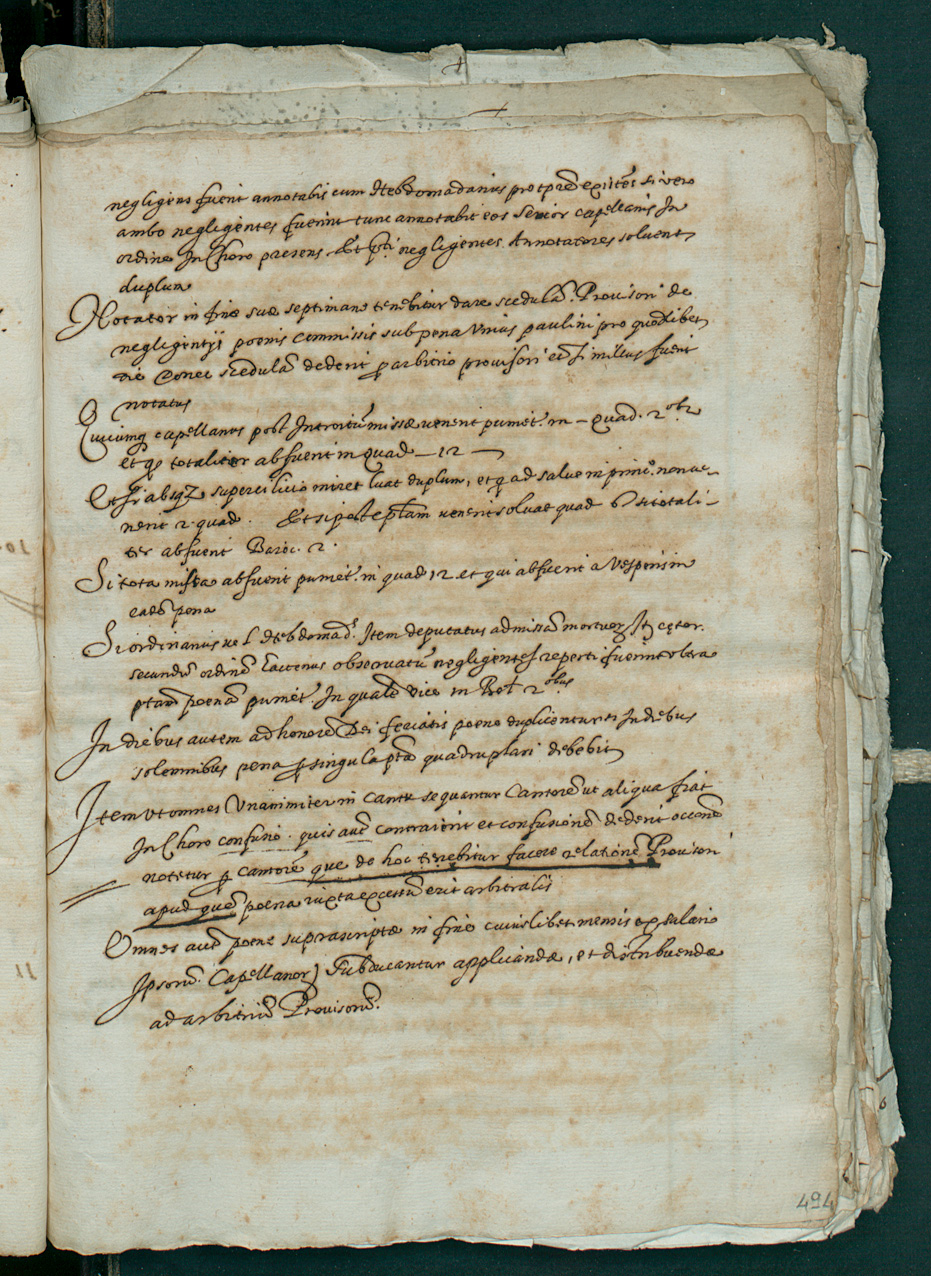 negligens fuerit annotabit eum Hebdomadarius existẽs si vero
ambo negligentes fuerint tunc annotabit eos Senior capellanus In
ordine In Choro presens. Et negligentes Annotatores solvent
duplum
Notator in fine suæ septimane tenebitur dare scedulã Provisori de
negligentiji poenis commissis sub pena Unius paulini pro quolibet
die donec scedulã dederit arbitrio provisori fuerit
notatus
capellanus post Introitũ missæ venerit puniet. in quad. 2
et totaliter absuerit in quad — 12 —
Et supercilicio luat duplum, et ad salve in princ. non ve-
nerit 2 quad. Et si post venerit solvat quad 6 si totali-
ter absuerit Baioc. 2.
Si tota missa absuerit puniet. in quad 12 et qui absuerit a Vesperis in
eadẽ pena
Si ordinarius vel Hebdomad. Item deputatus ad missam
secundũ ordinẽ hactenus observatũ negligentes reperti fuerint ultra
penã puniet. In qualẽ vice in
In diebus autem ad honorẽ Dei feriatis poene duplicentur In diebus
solemnibus pena singula quadruplari debebit
Item ut omnes Unanimiter in Cantu sequantur Cantorẽ ut aliqua fiat
In Choro confusio. quis autẽ contravenit et confusionẽ dederit
notetur cantorẽ que de hoc tenebitur facere relationẽ Provisori
apud quẽ poena iuxta excessũ erit arbitralis
Omnes autẽ poene suprascriptæ in fine cuiuslibet mensis ex salario
Ipsorũ Capellanor) subducantur applicandæ, et distribuendæ
ad arbitriũ Provisorũ.
494